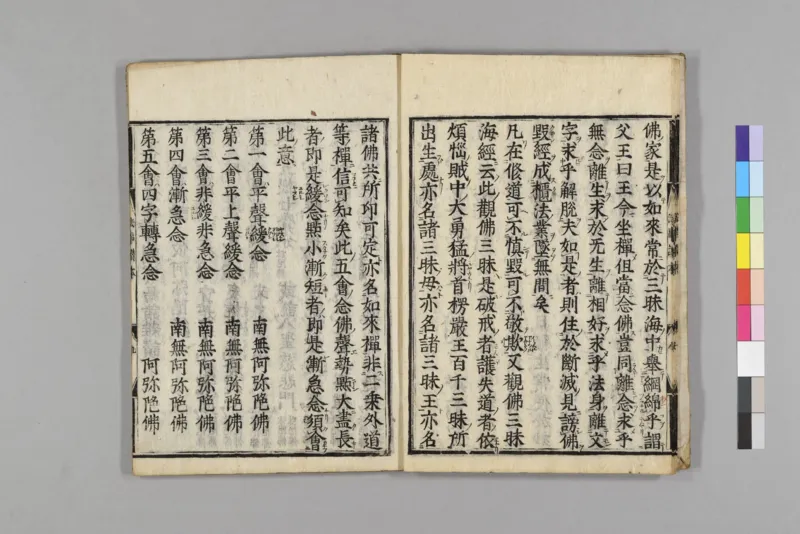 佛家是以如來常於三昧海中舉綱綿乎謂
父王曰王今坐禪但當念佛豈同離念求乎
無念離生求於无生離相好求乎法身離文
字求乎解脫夫如是者則住於斷滅見謗佛
毀經成櫃法業墜無間矣
凡在修道可不慎歟可不敬歟又觀佛三昧
海經云此觀佛三昧是破戒者護失道者依
煩惱賊中大勇猛將首楞嚴王百千三昧所
出生處亦名諸三昧母亦名諸三昧王亦名
諸佛共所印可定亦名如來禪非二乘外道
等禪信可知矣此五會念佛聲勢點大盡長
者即是緩念點小漸短者即是漸急念須會
此意
第一會平聲緩念 南無阿弥陀佛
第二會平上聲緩念 南無阿弥陀佛
第三會非緩非急念 南無阿弥陀佛
第四會漸急念 南無阿弥陀佛
第五會四字轉急念 阿弥陀佛